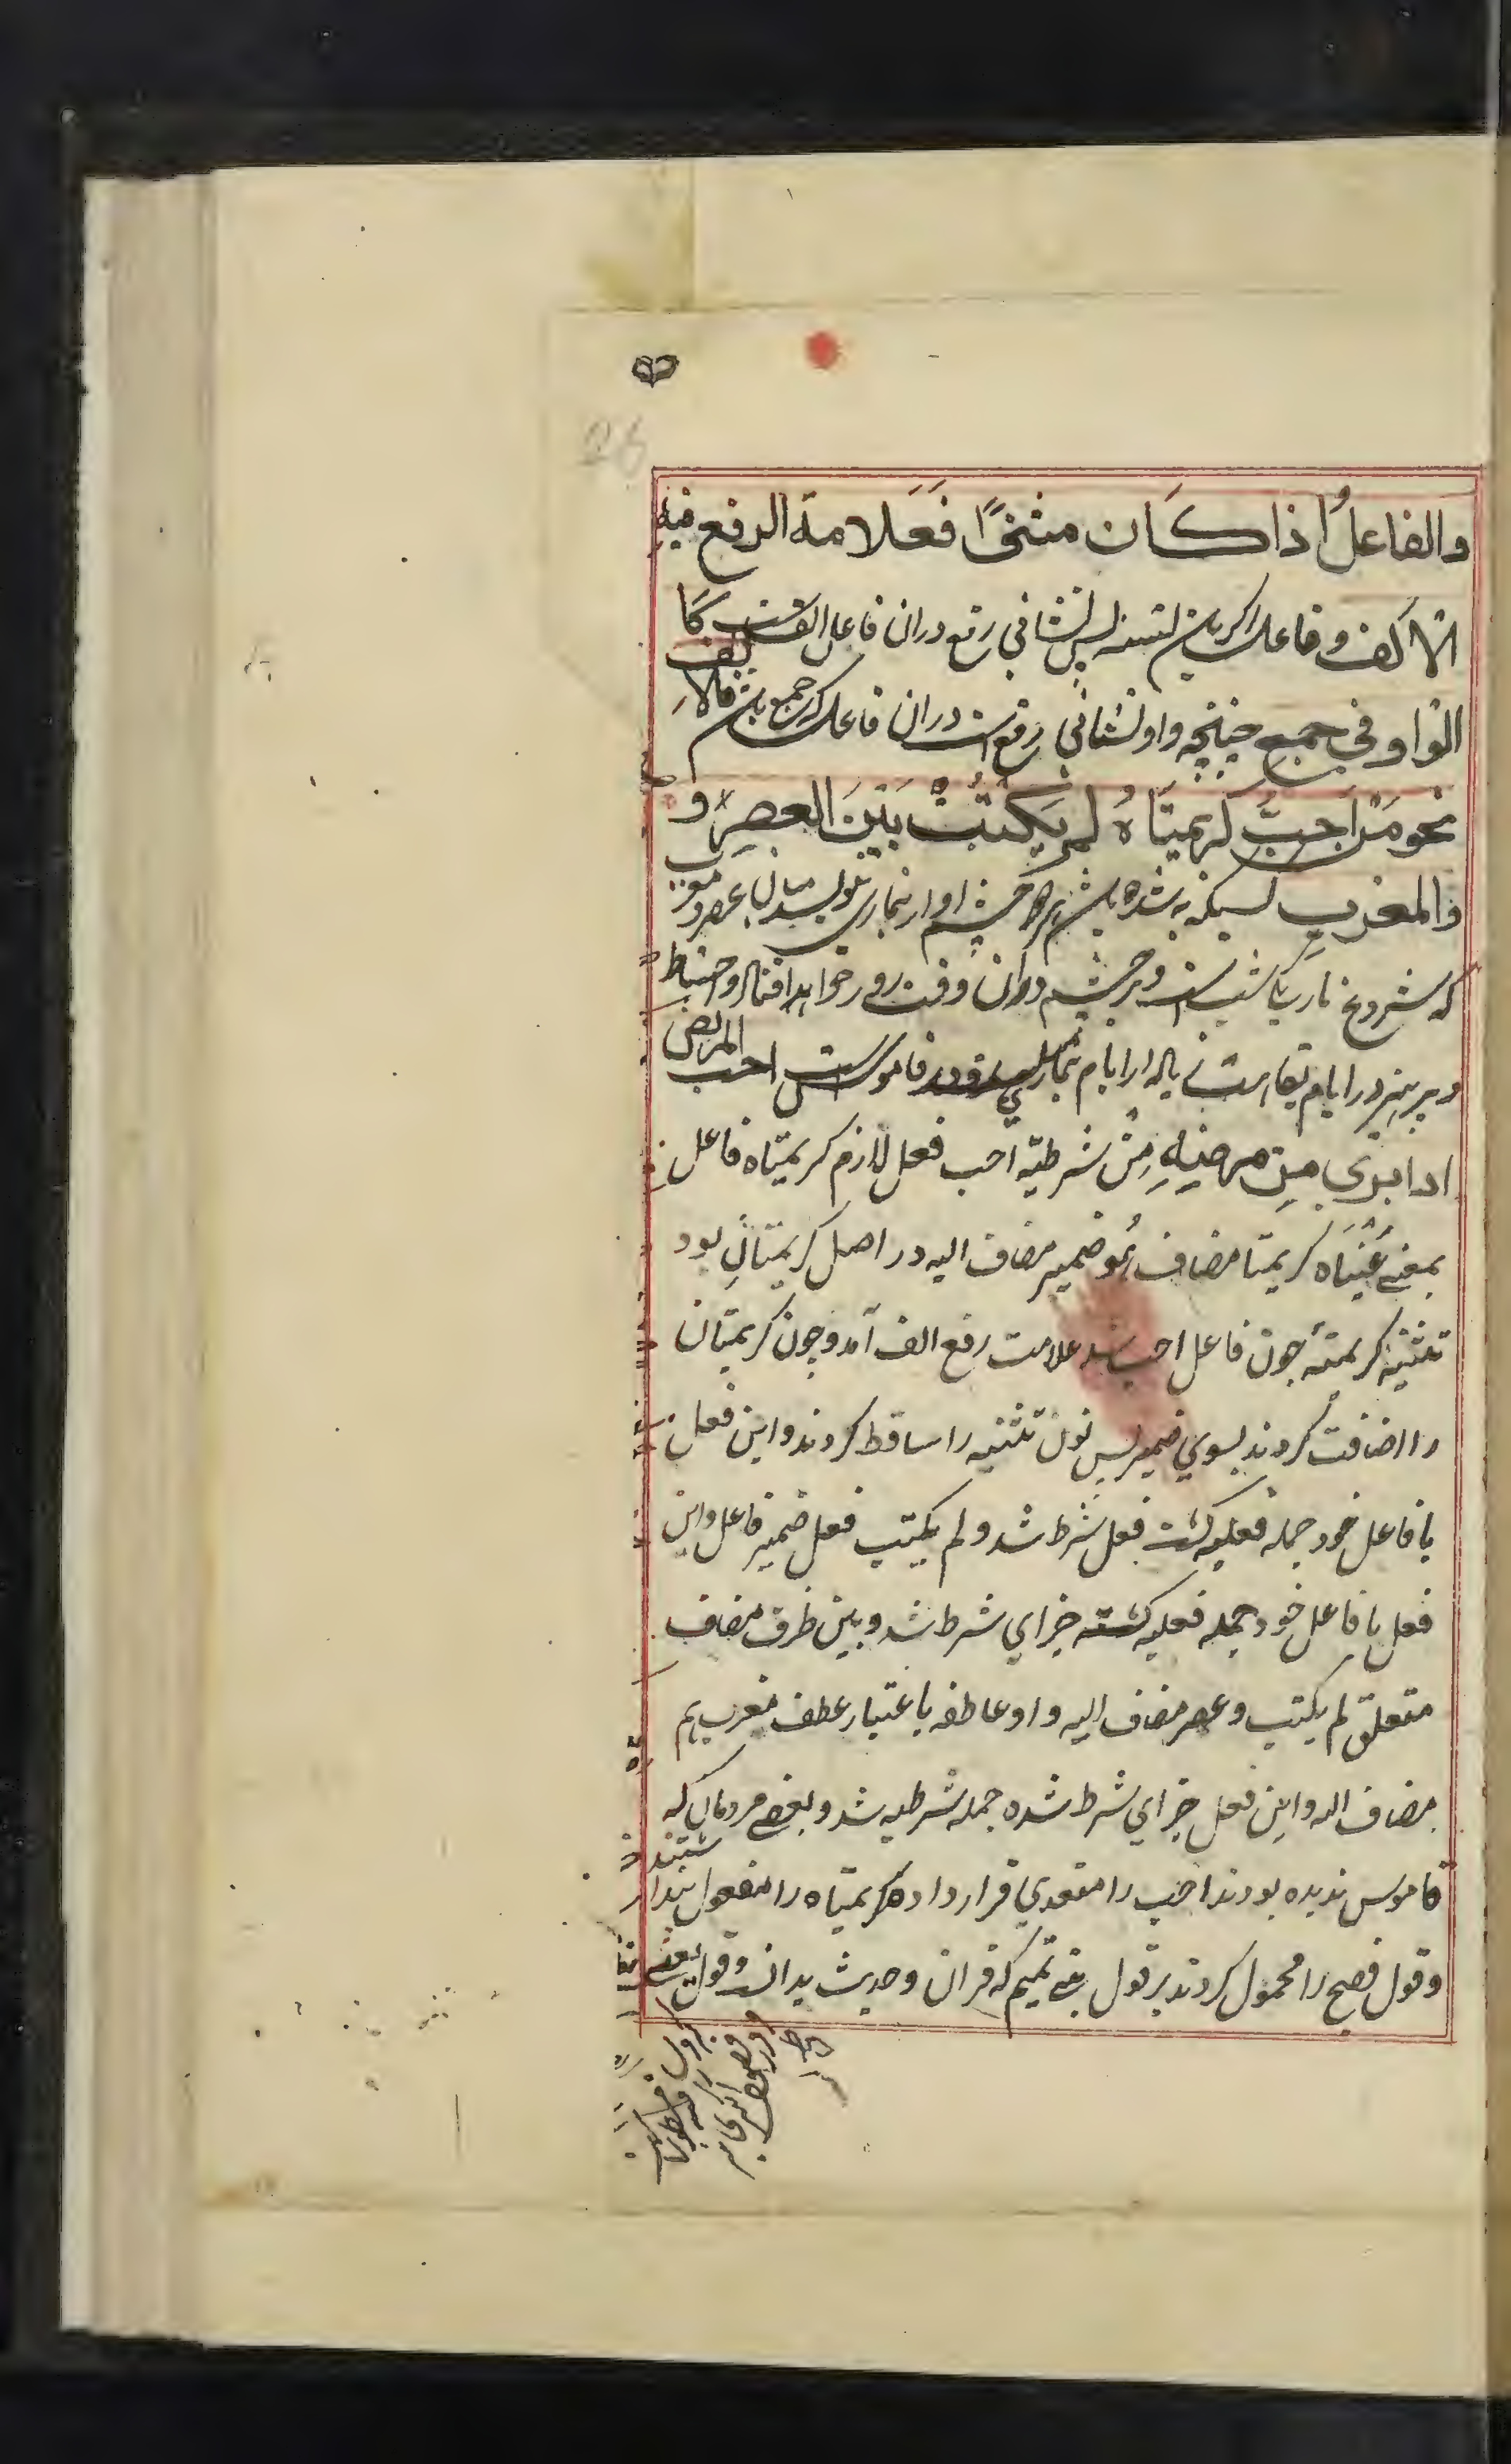 والفاعلُ اذا كَان مثنىً فَعَلامة الرفع فيه
الالف و فاعل اكر باشد تثنيه پس نشاني رفع دران فاعل الف است كَما
الواو في جمع چنانچه واو نشاني رفع است دران فاعل كه جمع باشد
نحو مَنْ اَحَبَّ كريمتَاهُ لم يَكتُبْ بَيْنَ العصرِ و
والمغربِ كسيكه به شده باشد هر دو چشم او از بيماري ننويسد ميان عصر و مغرب
كه شروع تاريكي شب است و بر چشم دران وقت زور خواهد افتاد و احتياط
و پرهيز در ايام نقاهت زياده از ايام بيماري در قاموس است احب المريض
اذا برئ مِن مرضِهِ مَنْ شرطيه احب فعل لازم كريمتاه فاعل
بمعني عَيْنَاه كريمتا مضاف هُو ضمير مضاف اليه در اصل كريمتانِ بود
تثنيه كريمة چون فاعل احب شد علامت رفع الف آمد و چون كريمتان
را اضافت كردند بسوي ضمير پس نون تثنيه را ساقط كردند و اين فعل
با فاعل خود جمله فعليه گشت فعل شرط شد و لم يكتب فعل ضمير فاعل و اين
فعل با فاعل خود جمله فعليه گشته جزاي شرط شد و بين ظرف مضاف
متعلق لم يكتب و عصر مضاف اليه و او عاطفه باعتبار عطف مغرب هم
مضاف اليه و اين فعل جزاي شرط شده جمله شرطيه شد و بعضي مردمان كه
قاموس نديده بودند احب را متعدي قرار داده كريمتاه را مفعول پنداشتند
و قول فصيح را محمول كردند بر قول بني تميم كه قران و حديث بدان و قول بعضي